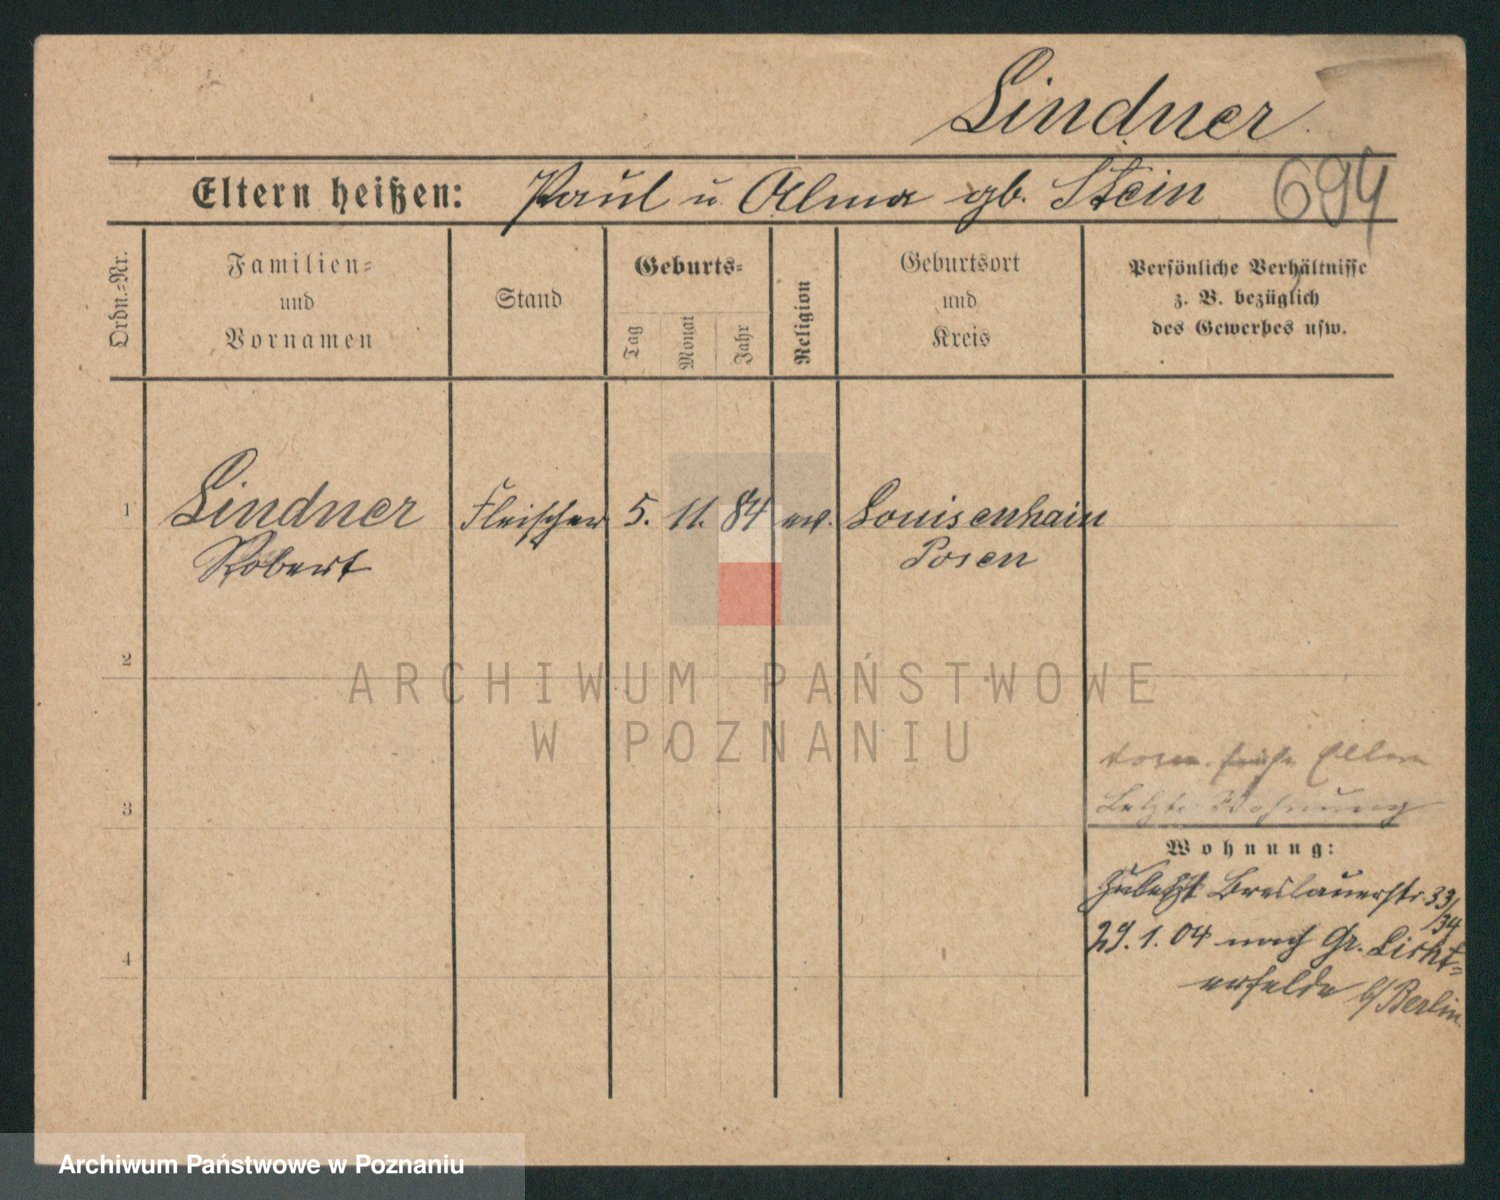 Lindner
Eltern heißen: Paul u. Alma gb. Stein
694
Ordn.=Nr.
Familien=
und
Vornamen
Stand
Geburts=
Tag
Monat
Jahr
Religion
Geburtsort
und
Kreis
Persönliche Verhältnisse
z. B. bezüglich
des Gewerbes usw.
1 Lindner Fleischer 5. 11. 84 ev. Louisenhain
Robert Posen
2
ARCHIWUM PAŃSTWOWE
W POZNANIU
Eltern
3 Letzte Wohnung
Wohnung:
Zuletzt Breslauerstr. 33/34
4 29. 1. 04 nach Gr. Licht=
erfelde b/Berlin
Archiwum Państwowe w Poznaniu